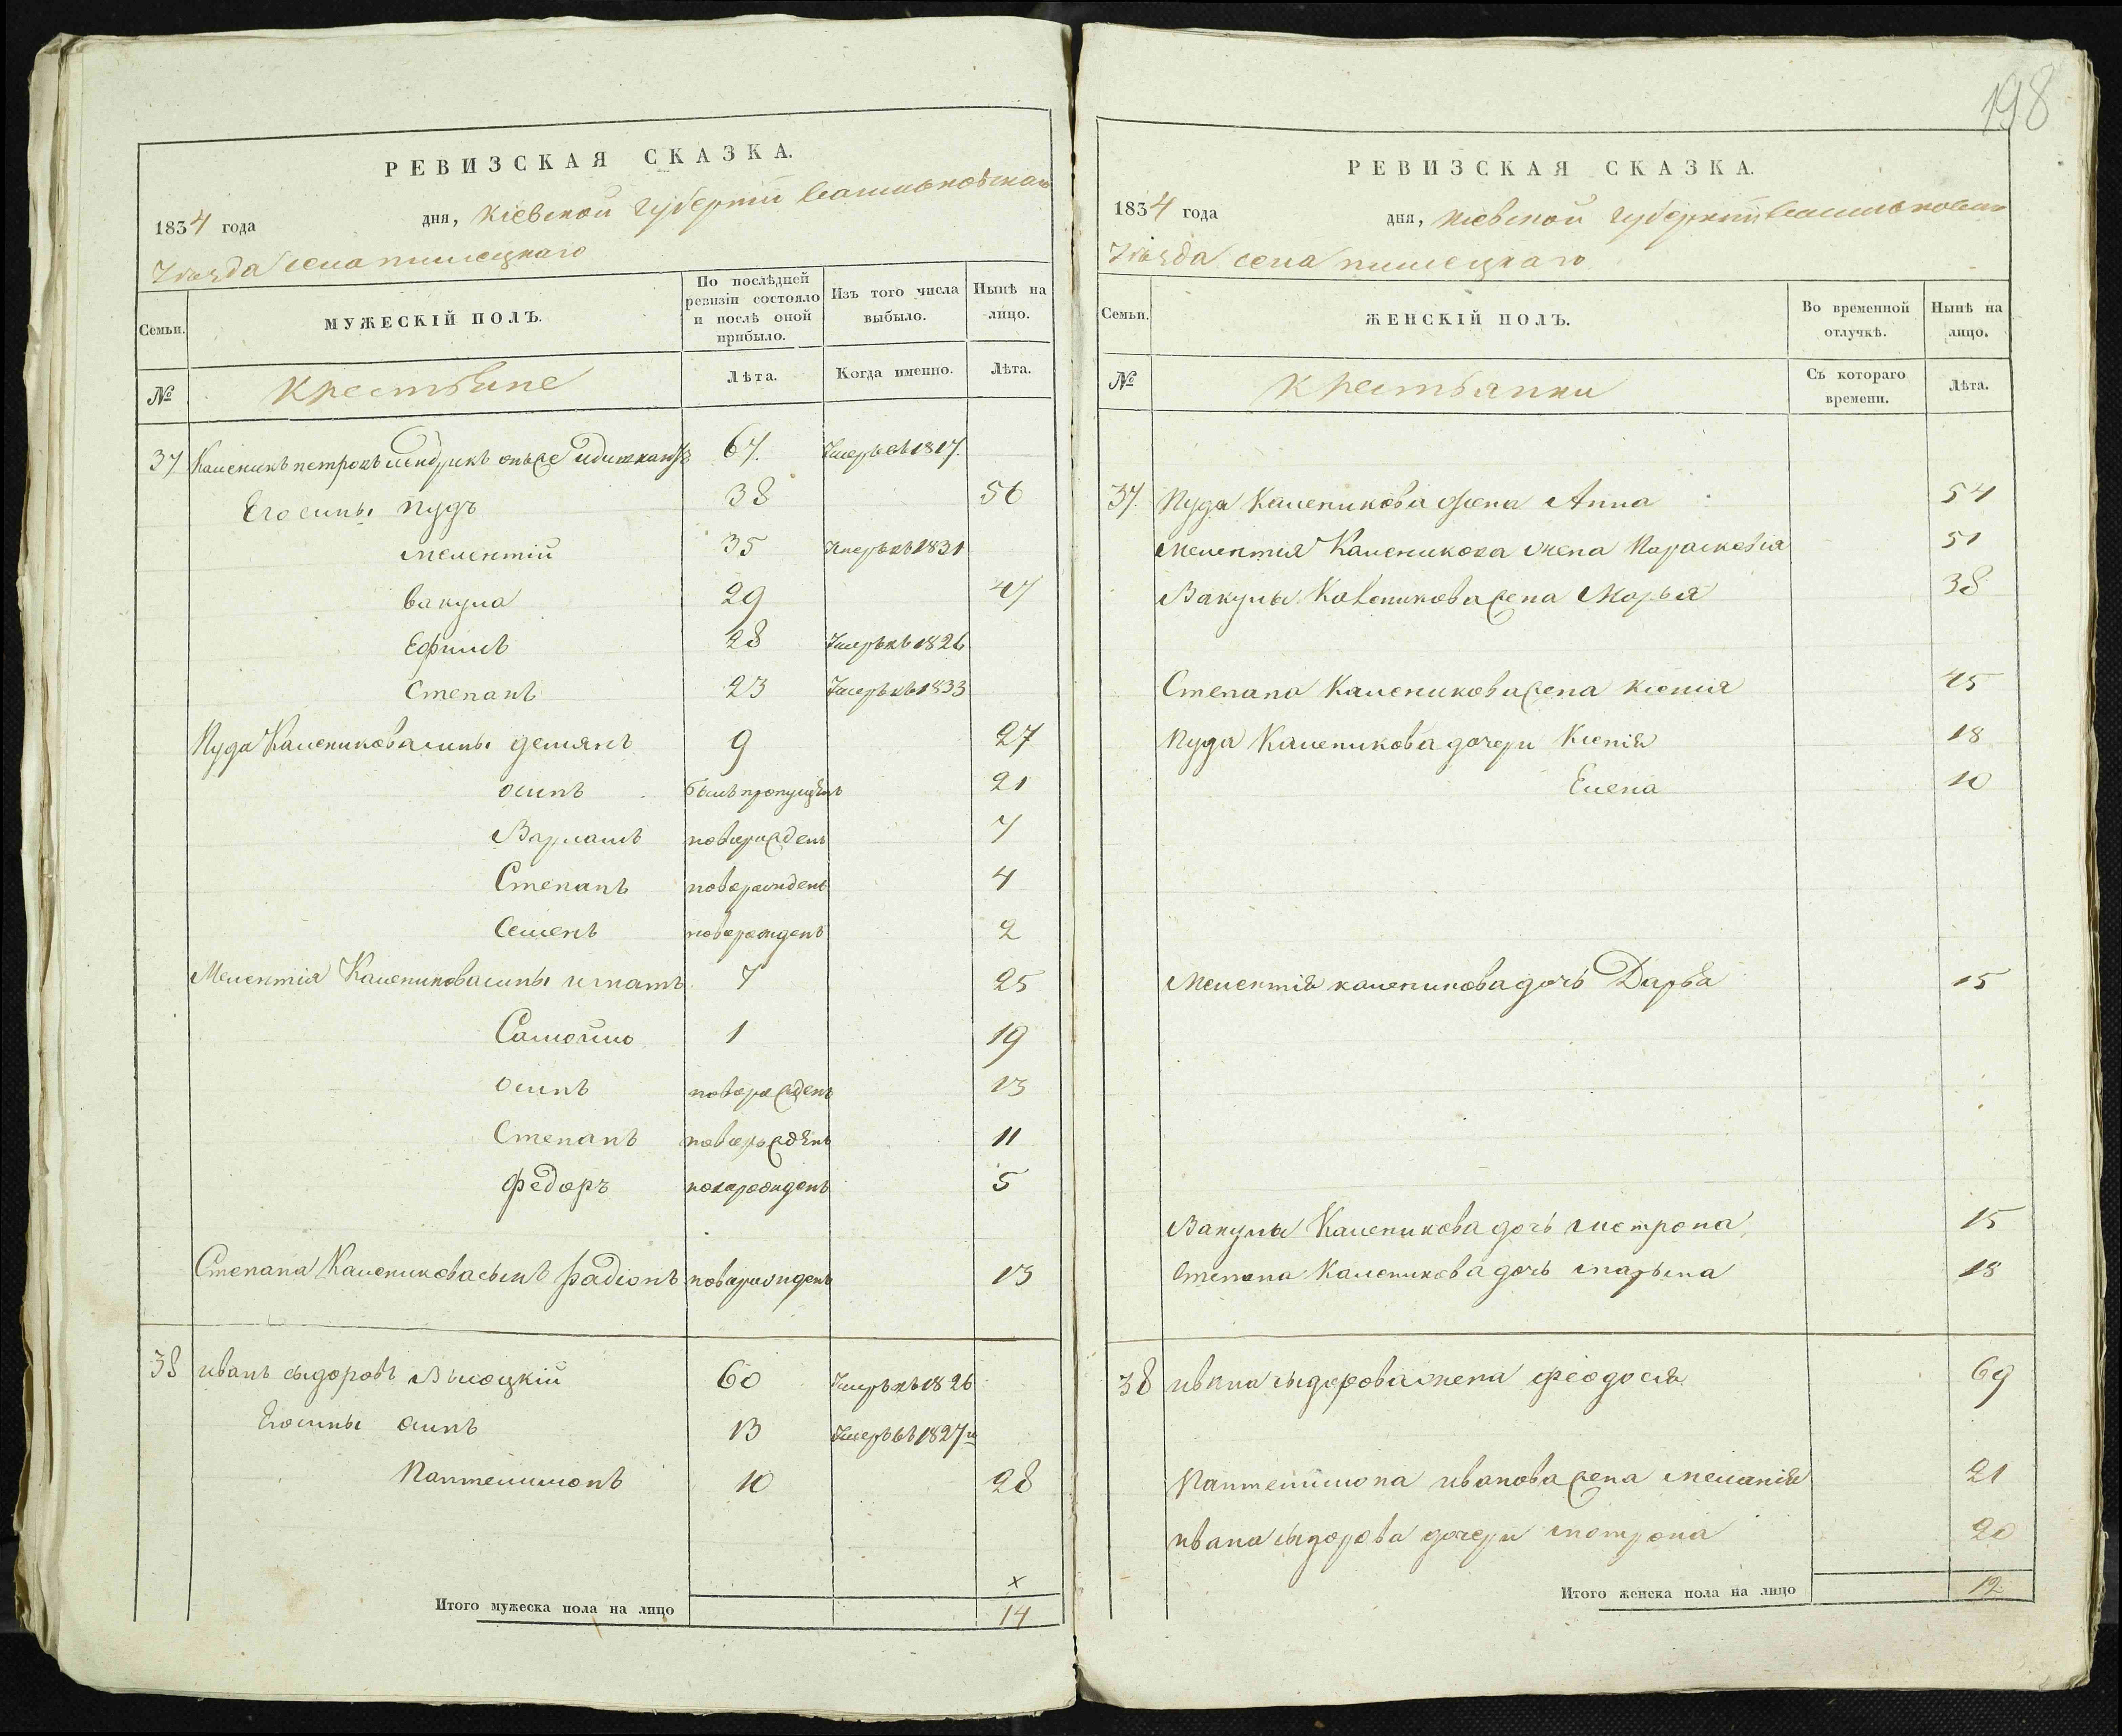 198
РЕВИЗСКАЯ СКАЗКА.
1834 года дня, Кіевской губерніи Васильковскаго
Уѣзда села
Семьи.
МУЖЕСКІЙ ПОЛЪ.
По послѣдней ревизіи состояло и послѣ оной прибыло.
Изъ того числа выбыло.
Нынѣ на лицо.
№ Крестьяне Лѣта. Когда именно. Лѣта.
37 Каленикъ петровъ онъ же 67. Умеръ въ 1817.
Его сыны пудъ 38 56
мелентій 35 Умеръ въ 1831
вакула 29 47
Ефимъ 28 Умеръ въ 1826
Степанъ 23 Умеръ въ 1833
Пуда Каленикова сыны демянъ 9 27
осипъ былъ пропущенъ 21
Варламъ новорожденъ 7
Степанъ новорожденъ 4
Семенъ новорожденъ 2
Мелентія Каленикова сыны игнатъ 7 25
Самойло 1 19
осипъ новорожденъ 13
Степанъ новорожденъ 11
федоръ новорожденъ 5
Степана Каленикова сынъ радіонъ новорожденъ 13
38 иванъ сыдоровъ Высоцкій 60 Умеръ въ 1826
Его сыны осипъ 13 Умеръ въ 1827
Пантелимонъ 10 28
х
Итого мужеска пола на лицо 14
РЕВИЗСКАЯ СКАЗКА.
1834 года дня, Кіевской губерніи
Уѣзда села
Семьи.
ЖЕНСКІЙ ПОЛЪ.
Во временной отлучкѣ.
Нынѣ на лицо.
№ Крестьянки Съ котораго времени. Лѣта.
37. Пуда Каленикова жена Анна 54
Мелентія Каленикова жена Парасковія 51
Вакулы Каленикова жена Марья 38
Степана Каленикова жена ксенія 45
Пуда Каленикова дочери Ксенія 18
Елена 10
Мелентія каленикова дочь Дарья 15
Вакулы Каленикова дочь мотрона 15
Степана Каленикова дочь марьяна 18
38 ивана сыдорова жена феодосія 69
Пантелимона иванова жена меланія 21
ивана сыдорова дочери мотрона 20
Итого женска пола на лицо 12